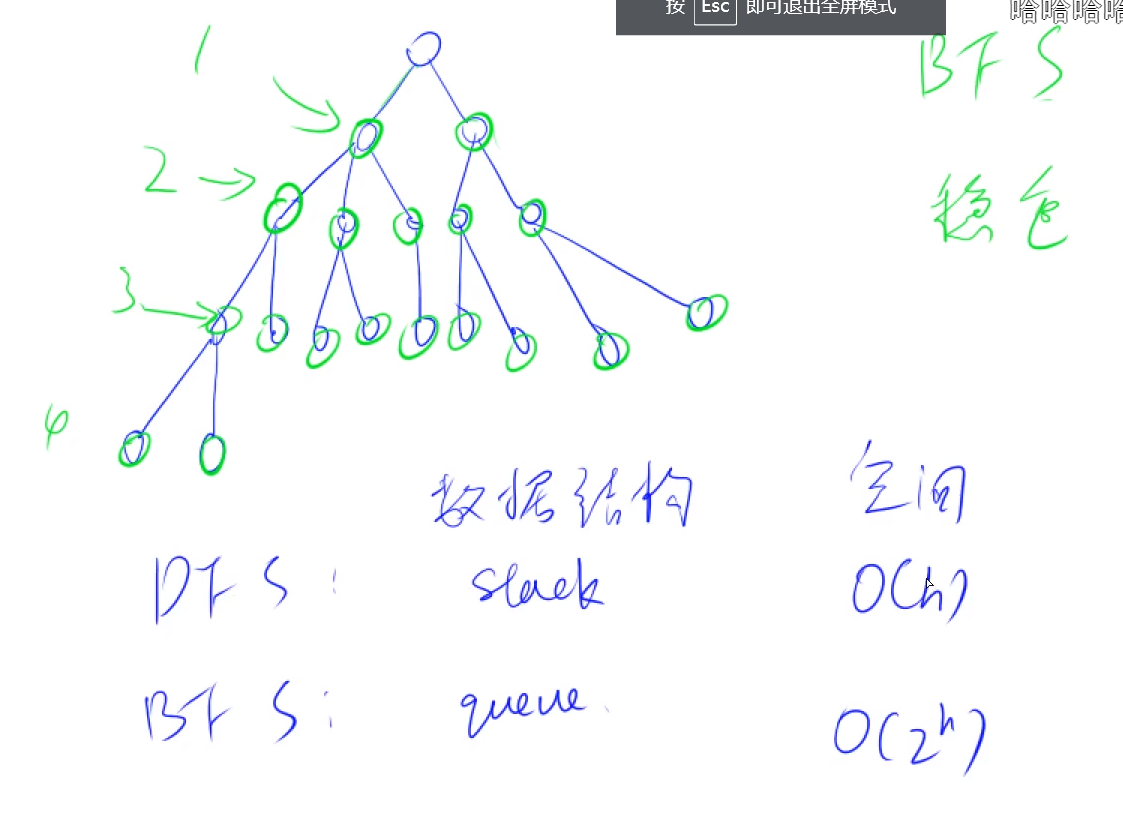 按 Esc 即可退出全屏模式
哈哈哈哈
BFS
1
稳
2
3
4
数据结构 空间
DFS: stack O(h)
BFS: queue. O(2^h)